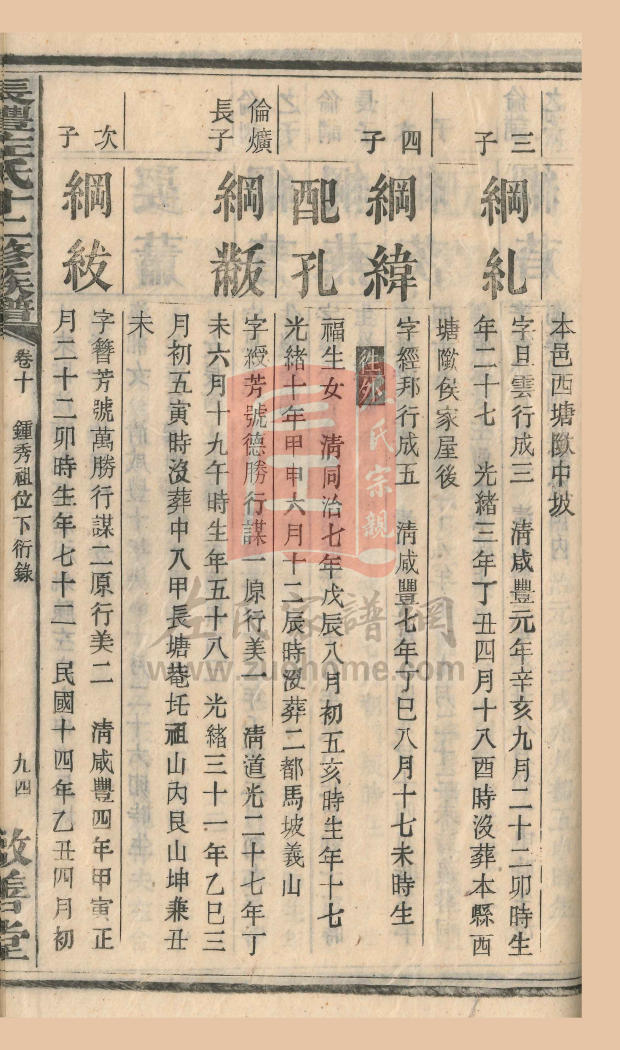 本邑西塘墈中坡
三子
綱紮
字旦雲行成三　清咸豐元年辛亥九月二十二卯時生
年二十七　光緒三年丁丑四月十八酉時沒葬本縣西
塘墈侯家屋後
四子
綱緯
字經邦行成五　清咸豐七年丁巳八月十七未時生
往外
配孔
福生女　清同治七年戊辰八月初五亥時生年十七
光緒十年甲申六月十二辰時沒葬二都馬坡義山
倫爌長子
綱黻
字綬芳號德勝行謀一原行美一　清道光二十七年丁
未六月十九午時生年五十八　光緒三十一年乙巳三
月初五寅時沒葬中八甲長塘菴坵祖山內艮山坤兼丑
未
次子
綱紱
字簪芳號萬勝行謀二原行美二　清咸豐四年甲寅正
月二十二卯時生年七十二　民國十四年乙丑四月初
長澧左氏十二修族譜
卷十　鍾秀祖位下衍錄
九四
敦善堂
氏宗親
左氏家譜網
www.zuohome.com